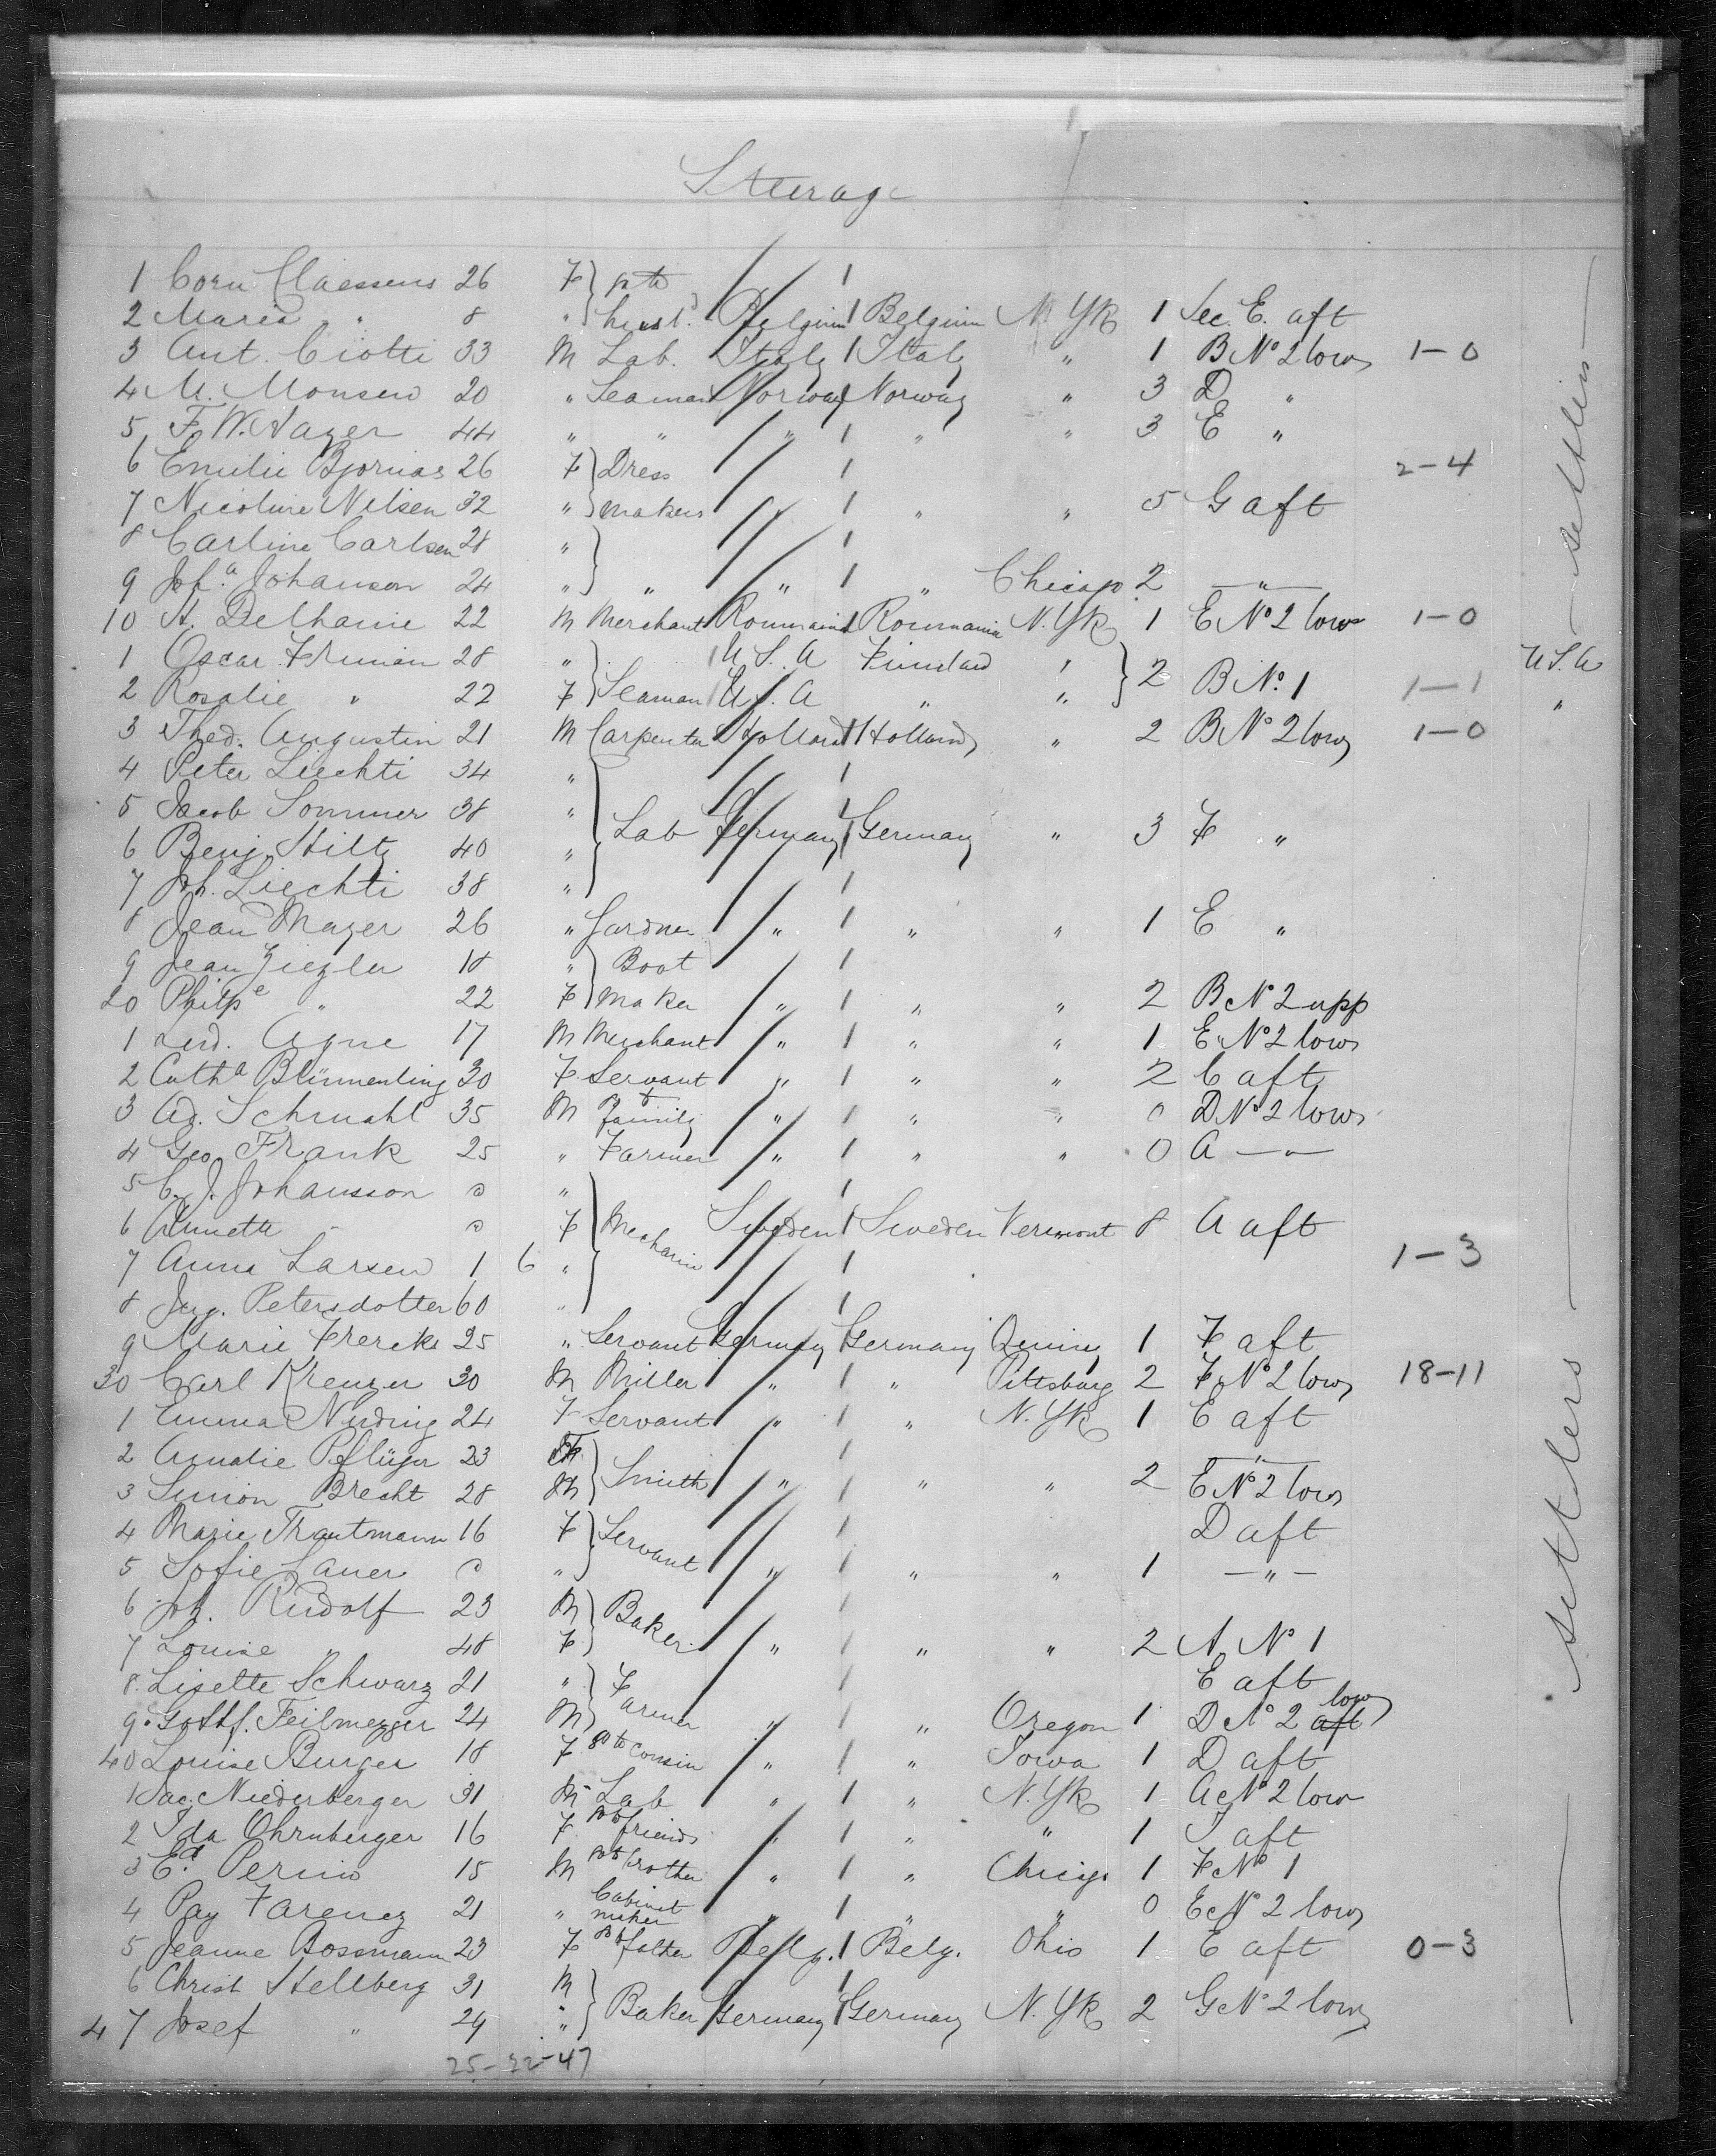 Steerage
1 Corn Claessens 26 F } p to
2 Maria " 8 " husbd Belgium Belgium N. Yk 1 Sec. E. aft
3 Ant. Ciotti 33 M Lab. Italy Italy " 1 B No 2 low 1-0
4 M. Monsen 20 " Seaman Norway Norway " 3 D "
5 F. W. Nager 44 " " " " " 3 E "
6 Emilie Bjornas 26 F } Dress 2-4
7 Nicoline Nilsen 32 " makers " " " 5 G aft
8 Carline Carlsen 28 " }
9 Joh.a Johanson 24 " " " " Chicago 2 — " —
10 A. Delhaine 22 M Merchant Roumania Roumania N. Yk 1 E No 2 low 1-0
1 Oscar Fruman 28 " } U. S. A Finnland " } U S. A
2 Rosalie " 22 F Seaman U. S. A " " 2 B No. 1 1-1 "
3 Thed. Augustin 21 M Carpenter Holland Holland " 2 B No 2 low 1-0
4 Peter Liechti 34 " }
5 Jacob Sommer 38 "
6 Benj. Stiltz 40 " Lab Germany Germany " 3 F "
7 Joh. Liechti 38 "
8 Jean Mayer 26 " Gardner " " " 1 E "
9 Jean Ziegler 18 " } Boot
20 Philpe " 22 F maker " " " 2 B No 2 upp
1 Ferd. Agne 17 M Merchant " " " 1 E No 2 low
2 Catha Blümenling 30 F Servant " " " 2 C aft
3 Ad. Schmahl 35 M p to family " " " 0 D No 2 low
4 Geo. Frank 25 " Farmer " " " 0 A — " —
5 C. J. Johansson 0 " }
6 Annetta " 0 F Mechanic Sweden Sweden Vermont 8 A aft
7 Anna Larsen 1 6 " 1-3
8 Ing. Petersdotter 60 "
9 Marie Frercks 25 " Servant Germany Germany Quincy 1 F aft
30 Carl Kreuzer 30 M Miller " " Pittsburg 2 F No 2 low 18-11
1 Emma Nuding 24 F Servant " " N. Yk 1 E aft
2 Amalie Pflüger 23 F } — " —
3 Simon Brecht 28 M Smith " " " 2 E No 2 low
4 Marie Trautmann 16 F } Servant D aft
5 Sofie Lauer 0 " " " " 1 — " —
6 Joh. Rudolf 23 M } Baker
7 Louise " 48 F " " " 2 A No 1
8 Lisette Schwarz 21 " } Farmer E aft
9 Gotthf. Feilmezger 24 M " " Oregon 1 D No 2 aft low
40 Louise Burger 18 F p to cousin " " Iowa 1 D aft
1 Jac. Niederberger 31 M Lab " " N. Yk 1 A No 2 low
2 Ida Ohrnberger 16 F p to friends " " " 1 I aft
3 Ed Perino 15 M p to brother " " Chicago 1 F No 1
4 Pay Farency 21 " Cabinet maker " " " 0 E No 2 low
5 Jeanne Bossmann 23 F p to father Belg. Belg. Ohio 1 E aft 0-3
6 Christ Stellberg 31 M }
47 Josef " 24 " Baker Germany Germany N. Yk 2 G No 2 low
25-22-47
settlers
settlers